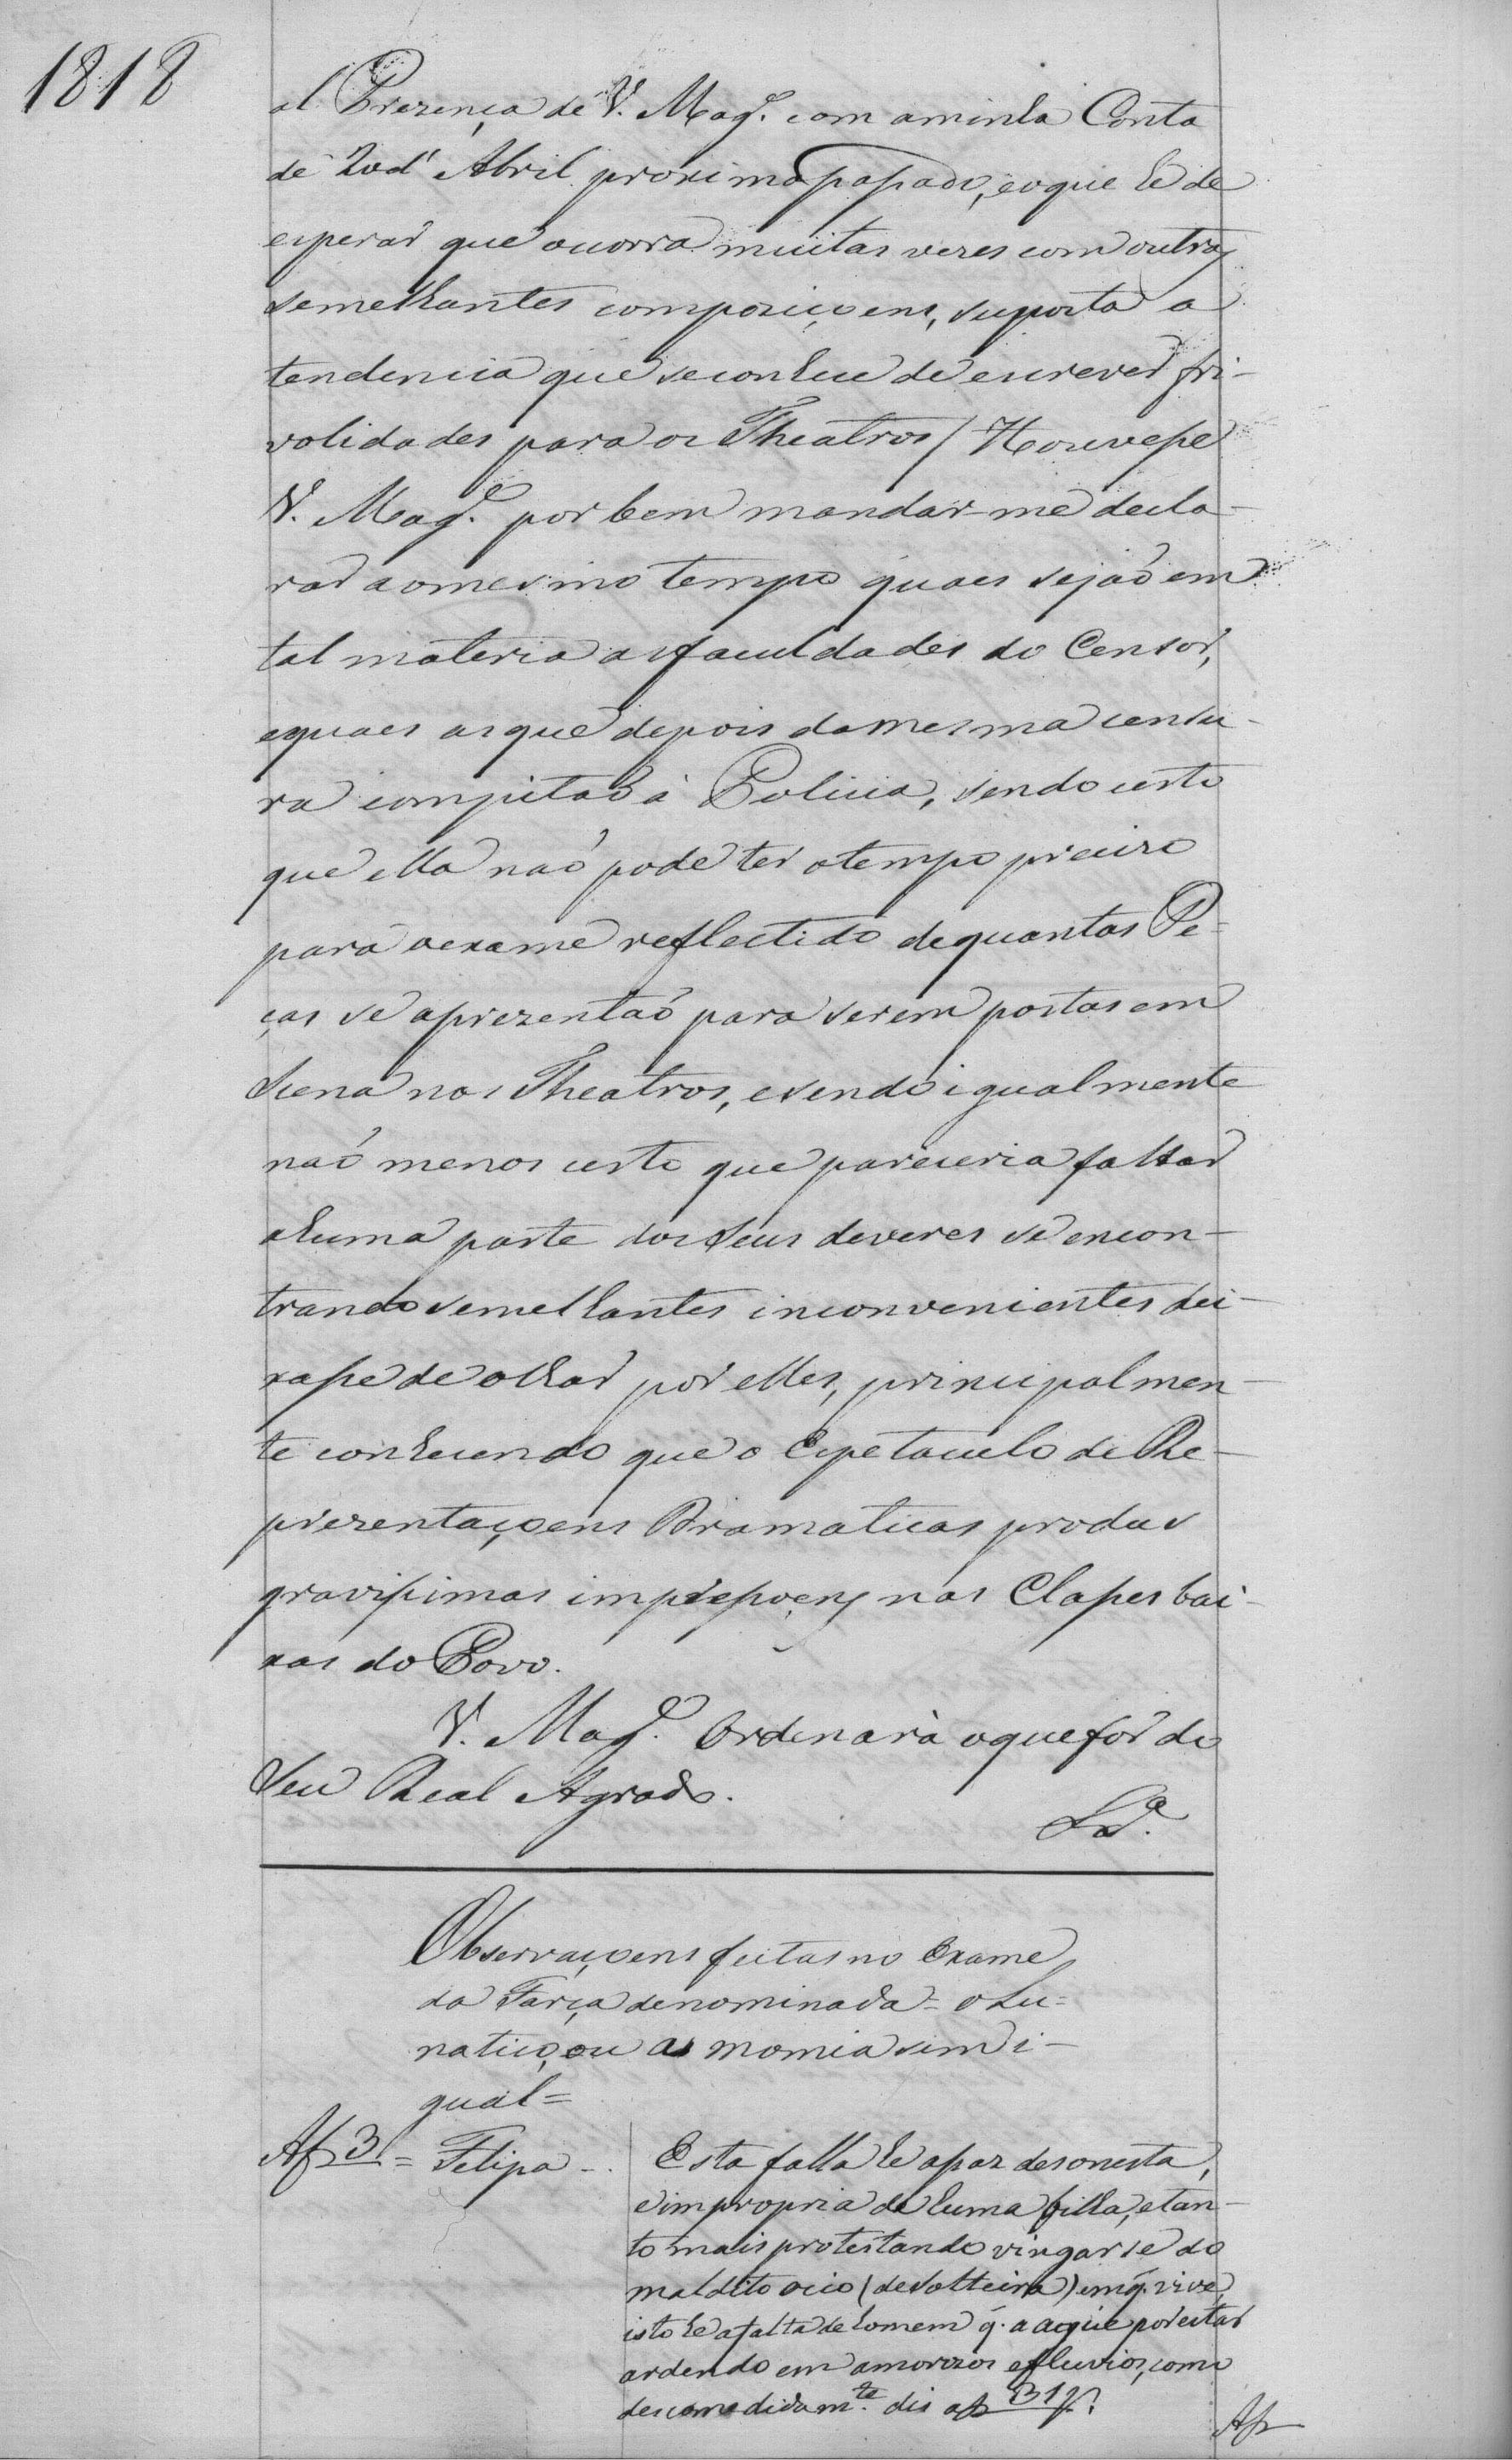 1818
á Prezença de V. Mag.e com a minha Conta
de 20 d' Abril proximo passado, e o que he de
esperar que ocorra muitas vezes com outras
semelhantes composiçoens, suposta a
tendencia que se conhece de escrever fri-
volidades para os Theatros / Houvesse
V. Mag.e por bem mandar-me decla-
rar ao mesmo tempo quaes sejaõ em
tal materia as faculdades do Censor,
e quaes as que depois da mesma censu-
ra compitaõ á Policia, sendo certo
que ella naõ pode ter o tempo precizo
para o exame reflectido de quantas Pe-
ças se aprezentaõ para serem postas em
Scena nos Theatros, e sendo igualmente
naõ menos certo que pareceria faltar
a huma parte dos seus deveres se encon-
trando semelhantes inconvenientes dei-
xasse de olhar por elles, principalmen-
te conhecendo que o Espetaculo de Re-
prezentaçoens Dramaticas produs
gravissimas impressoens nas Classes bai-
xas do Povo.
V. Mag.e Ordenarà o que for de
Seu Real Agrado.
Observaçoens feitas no Exame
da Farça denominada = o Lu=
natico, ou as momia sem i-
gual =
Af 3 = Felipa -. Esta falla he assaz desonesta,
e impropria de huma filha, e tan-
to mais protestando vingar se do
maldito ocio (de solteira) em q. vive,
isto he a falta de homem q. a açque por estar
ardendo em amorozos effluvios, como
descomedidam.te dis af 31 V.
Af